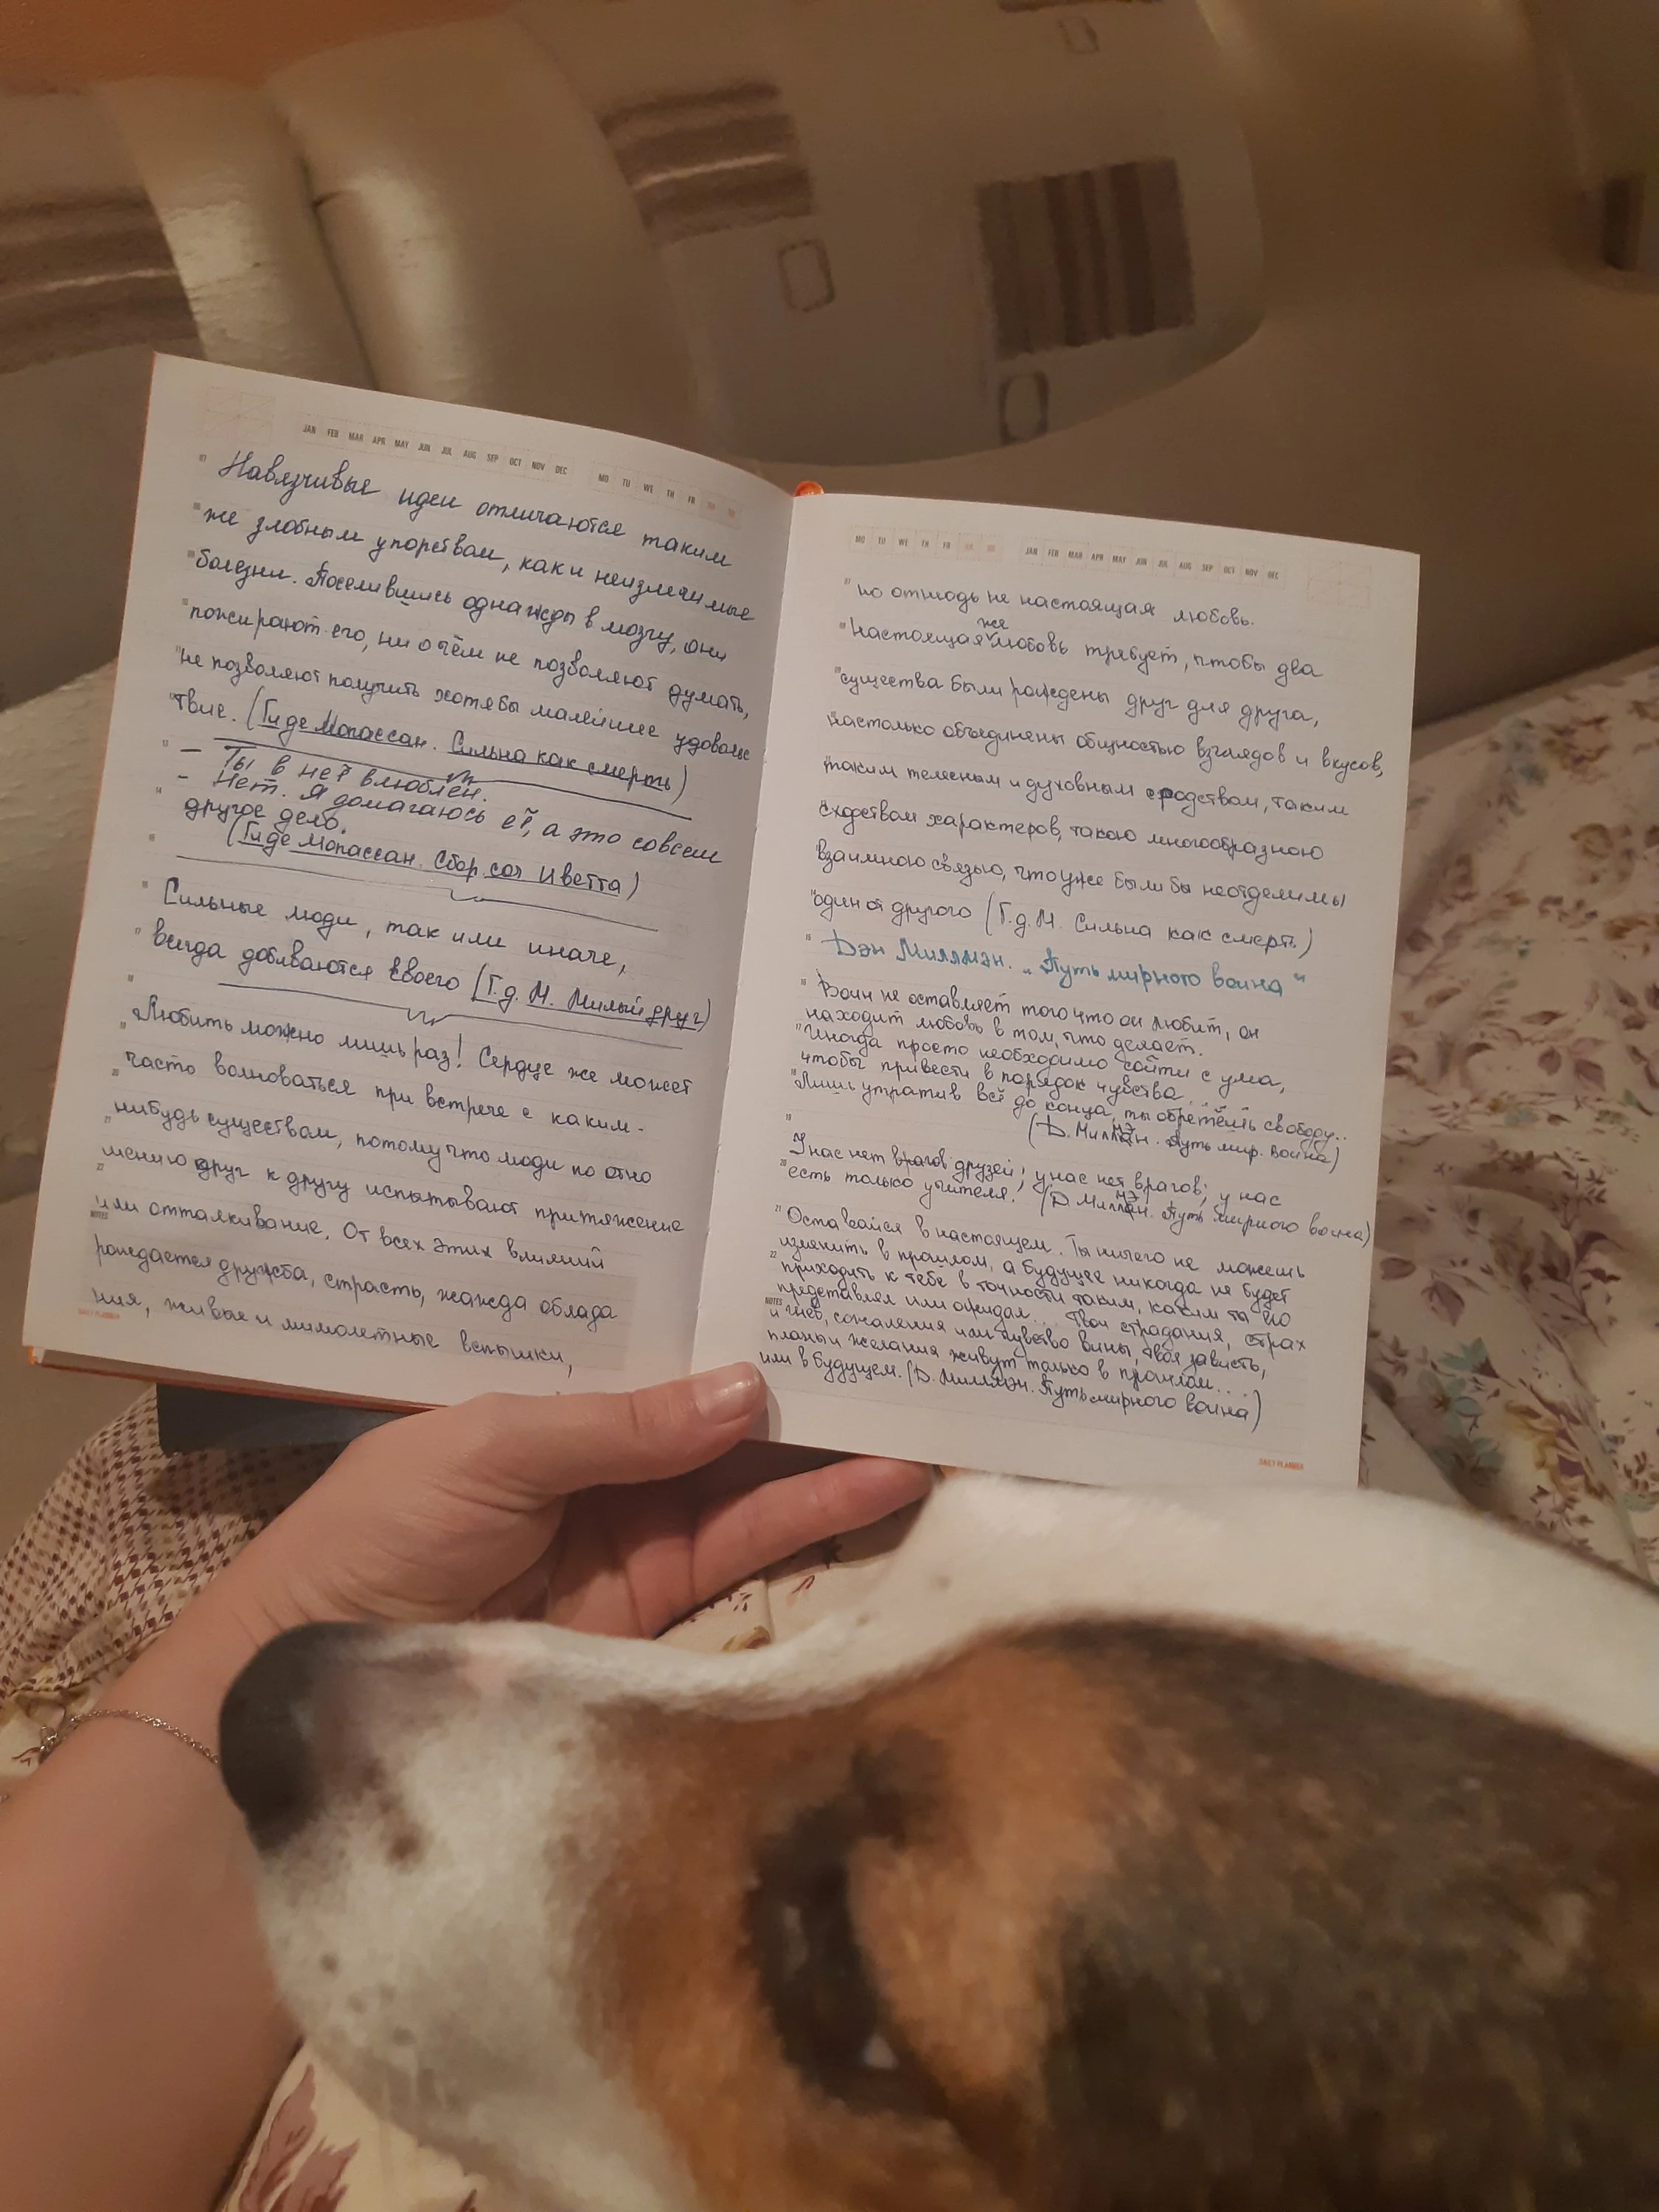 JAN FEB MAR APR MAY JUN JUL AUG SEP OCT NOV DEC MO TU WE TH FR SA SU
07 Навязчивые идеи отличаются таким
08 же злобным упорством, как и неизлечимые
09 болезни. Поселившись однажды в мозгу, они
10 пожирают его, ни о чём не позволяют думать,
11 не позволяют получить хотя бы малейшее удовольс
12 твие. (Ги де Мопассан. Сильна как смерть)
13 – Ты в неё влюблён.
– Нет. Я домагаюсь её, а это совсем
14 другое дело.
15 (Ги де Мопассан. Сбор соч Иветта)
16 Сильные люди, так или иначе,
17 всегда добиваются своего (Г.д. М. Милый друг)
18
19 Любить можно лишь раз! Сердце же может
20 часто волноваться при встрече с каким-
21 нибудь существом, потому что люди по отно
22 шению друг к другу испытывают притяжение
NOTES или отталкивание. От всех этих влияний
рождается дружба, страсть, жажда облада
ния, живые и мимолетные вспышки,
DAILY PLANNER
MO TU WE TH FR SA SU JAN FEB MAR APR MAY JUN JUL AUG SEP OCT NOV DEC
07 но отнюдь не настоящая любовь.
же
08 Настоящая любовь требует, чтобы два
09 существа были рождены друг для друга,
настолько объединены общностью взглядов и вкусов,
таким телесным и духовным сродством, таким
сходством характеров, такою многообразною
взаимною связью, что уже были бы неотделимы
14 один от другого (Г.д.М. Сильна как смерть)
15 Дэн Миллмэн. „Путь мирного воина“
16 Воин не оставляет того что он любит, он
находит любовь в том, что делает.
17 Иногда просто необходимо сойти с ума,
чтобы привести в порядок чувства...
18 Лишь утратив всё до конца, ты обретёшь свободу..
19 (Д. Миллмэн. Путь мир. воина)
У нас нет врагов друзей; у нас нет врагов; у нас
20 есть только учителя! (Д. Миллмэн. Путь мирного воина)
21 Оставайся в настоящем. Ты ничего не можешь
изменить в прошлом, а будущее никогда не будет
22 приходить к тебе в точности таким, каким ты его
представлял или ожидал... Твои страдания, страх
NOTES и гнев, сожаления или чувство вины, твоя зависть,
планы и желания живут только в прошлом...
или в будущем. (Д. Миллмэн. Путь мирного воина)
DAILY PLANNER